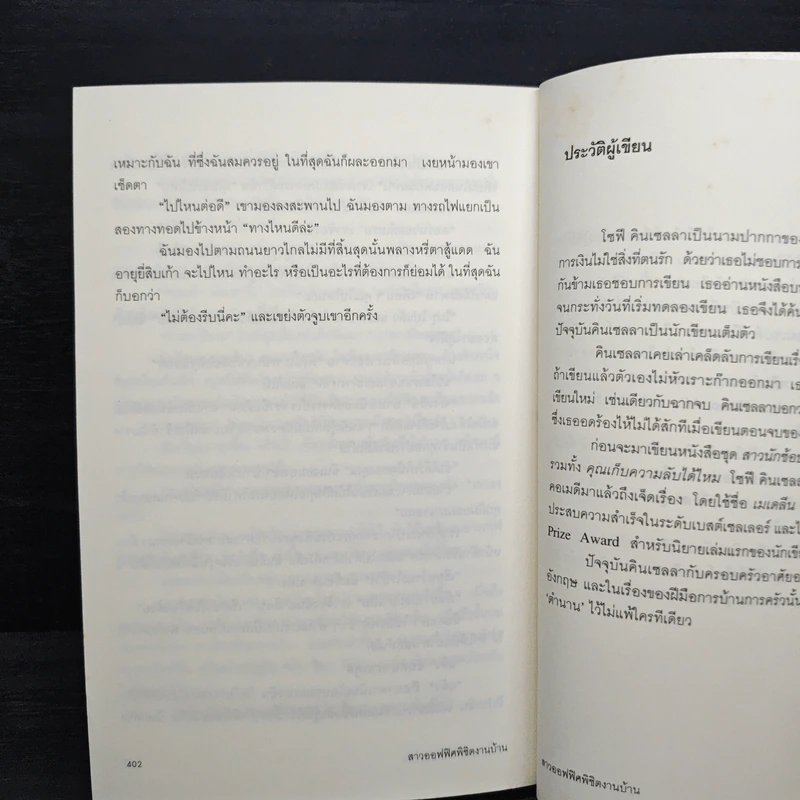 เหมาะกับฉัน ที่ซึ่งฉันสมควรอยู่ ในที่สุดฉันก็ผละออกมา เงยหน้ามองเขา
เช็ดตา
“ไปไหนต่อดี” เขามองลงสะพานไป ฉันมองตาม ทางรถไฟแยกเป็น
สองทางทอดไปข้างหน้า “ทางไหนดีล่ะ”
ฉันมองไปตามถนนยาวไกลไม่มีที่สิ้นสุดนั้นพลางหรี่ตาสู้แดด ฉัน
อายุยี่สิบเก้า จะไปไหน ทำอะไร หรือเป็นอะไรที่ต้องการก็ย่อมได้ ในที่สุดฉัน
ก็บอกว่า
“ไม่ต้องรีบนี่คะ” และเขย่งตัวจูบเขาอีกครั้ง
402
สาวออฟฟิศพิชิตงานบ้าน
ประวัติผู้เขียน
โซฟี คินเซลลาเป็นนามปากกาของ
การเงินไม่ใช่สิ่งที่ตนรัก ด้วยว่าเธอไม่ชอบการ
กันข้ามเธอชอบการเขียน เธออ่านหนังสือบ
จนกระทั่งวันที่เริ่มทดลองเขียน เธอจึงได้ค้น
ปัจจุบันคินเซลลาเป็นนักเขียนเต็มตัว
คินเซลลาเคยเล่าเคล็ดลับการเขียนเรื่
ถ้าเขียนแล้วตัวเองไม่หัวเราะก๊ากออกมา เธ
เขียนใหม่ เช่นเดียวกับฉากจบ คินเซลลาบอกว
ซึ่งเธออดร้องไห้ไม่ได้สักทีเมื่อเขียนตอนจบของ
ก่อนจะมาเขียนหนังสือชุด สาวนักช้อป
รวมทั้ง คุณเก็บความลับได้ไหม โซฟี คินเซล
คอเมดีมาแล้วถึงเจ็ดเรื่อง โดยใช้ชื่อ เมเดลีน
ประสบความสำเร็จในระดับเบสต์เซลเลอร์ และไ
Prize Award สำหรับนิยายเล่มแรกของนักเขีย
ปัจจุบันคินเซลลากับครอบครัวอาศัยอ
อังกฤษ และในเรื่องของฝีมือการบ้านการครัวนั้น
‘ตำนาน’ ไว้ไม่แพ้ใครทีเดียว
สาวออฟฟิศพิชิตงานบ้าน